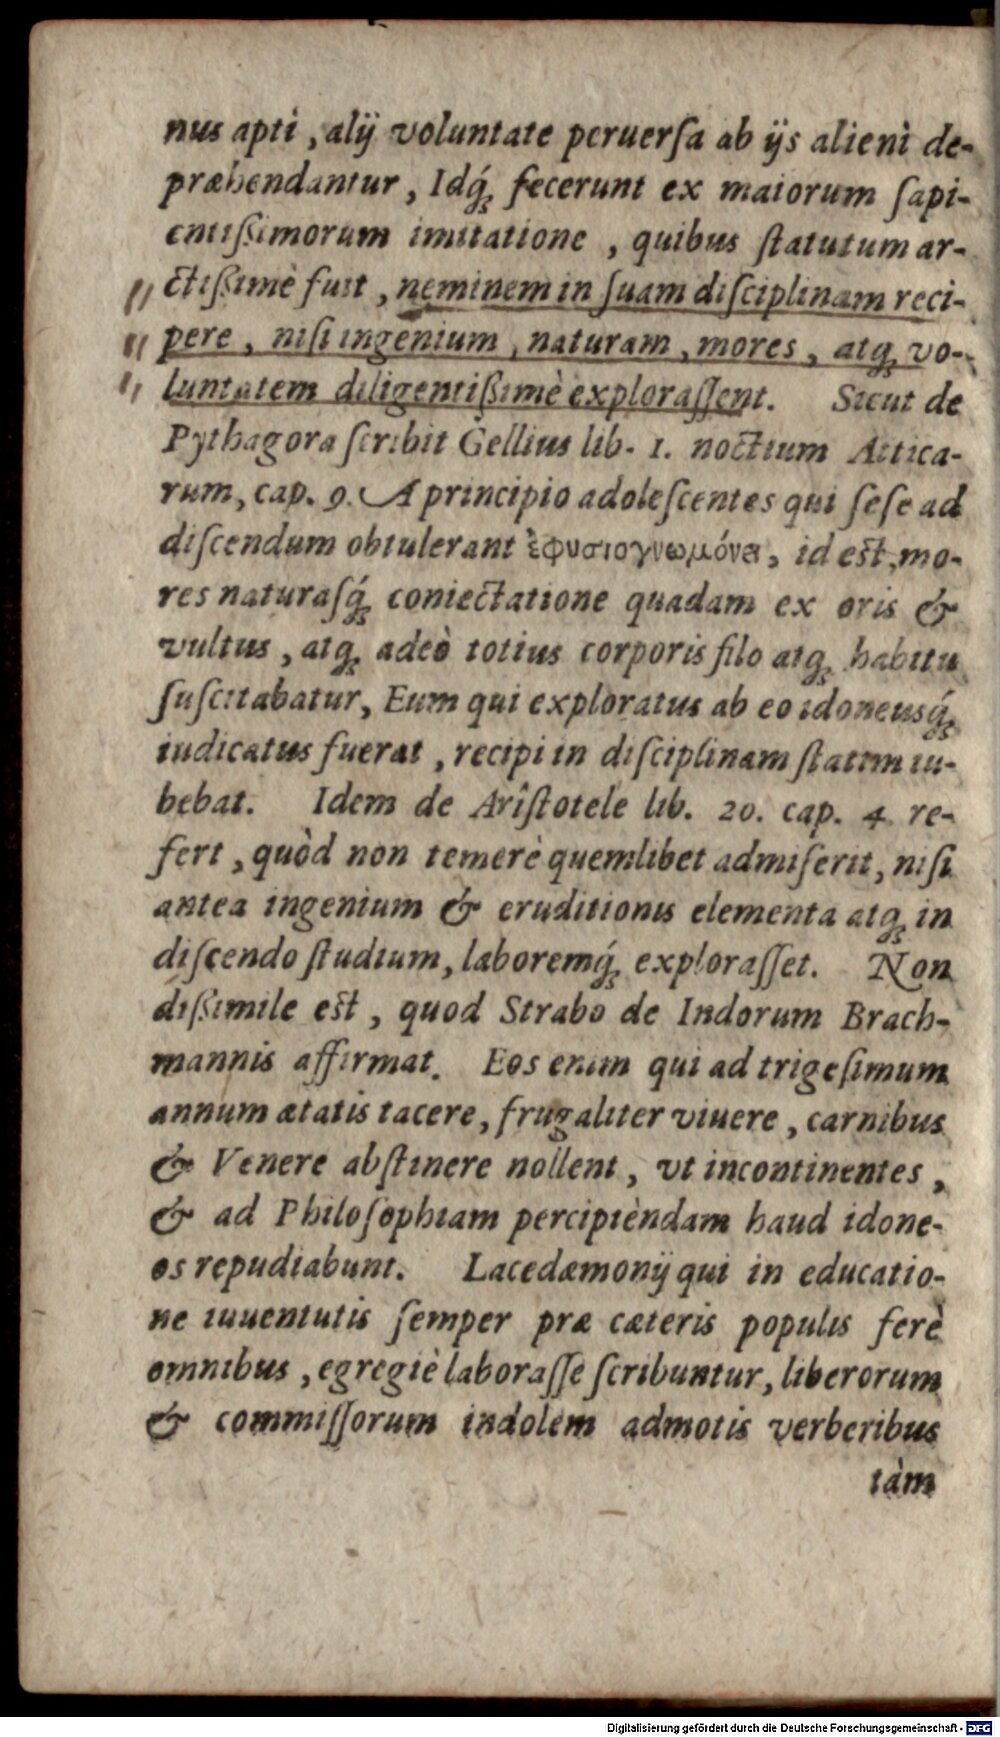 nus apti, alij voluntate peruerſa ab ijs alieni de-
præhendantur, Idq́ꝫ fecerunt ex maiorum ſapi-
entißimorum imitatione, quibus ſtatutum ar-
ctißimè fuit, neminem in ſuam diſciplinam reci-
pere, niſi ingenium, naturam, mores, atqꝫ vo-
luntatem diligentißimè exploraſſent. Sicut de
Pythagora ſcribit Gellius lib. 1. noctium Attica-
rum, cap. 9. A principio adoleſcentes qui ſeſe ad
diſcendum obtulerant ἐφυσιογνωμόνει, id est, mo-
res naturaſq́ꝫ coniectatione quadam ex oris &
vultus, atqꝫ adeò totius corporis filo atqꝫ habitu
ſuſcitabatur, Eum qui exploratus ab eo idoneusq́ꝫ
iudicatus fuerat, recipi in diſciplinam ſtatim iu-
bebat. Idem de Ariſtotele lib. 20. cap. 4. re-
fert, quòd non temerè quemlibet admiſerit, niſi
antea ingenium & eruditionis elementa atqꝫ in
diſcendo ſtudium, laboremq́ꝫ exploraſſet. Non
dißimile est, quod Strabo de Indorum Brach-
mannis affirmat. Eos enim qui ad trigeſimum
annum ætatis tacere, frugaliter viuere, carnibus
& Venere abſtinere nollent, vt incontinentes,
& ad Philoſophiam percipièndam haud idone-
os repudiabunt. Lacedæmonij qui in educatio-
ne iuuentutis ſemper præ cæteris populis ferè
omnibus, egregiè laboraſſe ſcribuntur, liberorum
& commiſſorum indolem admotis verberibus
tàm
Digitalisierung gefördert durch die Deutsche Forschungsgemeinschaft - DFG